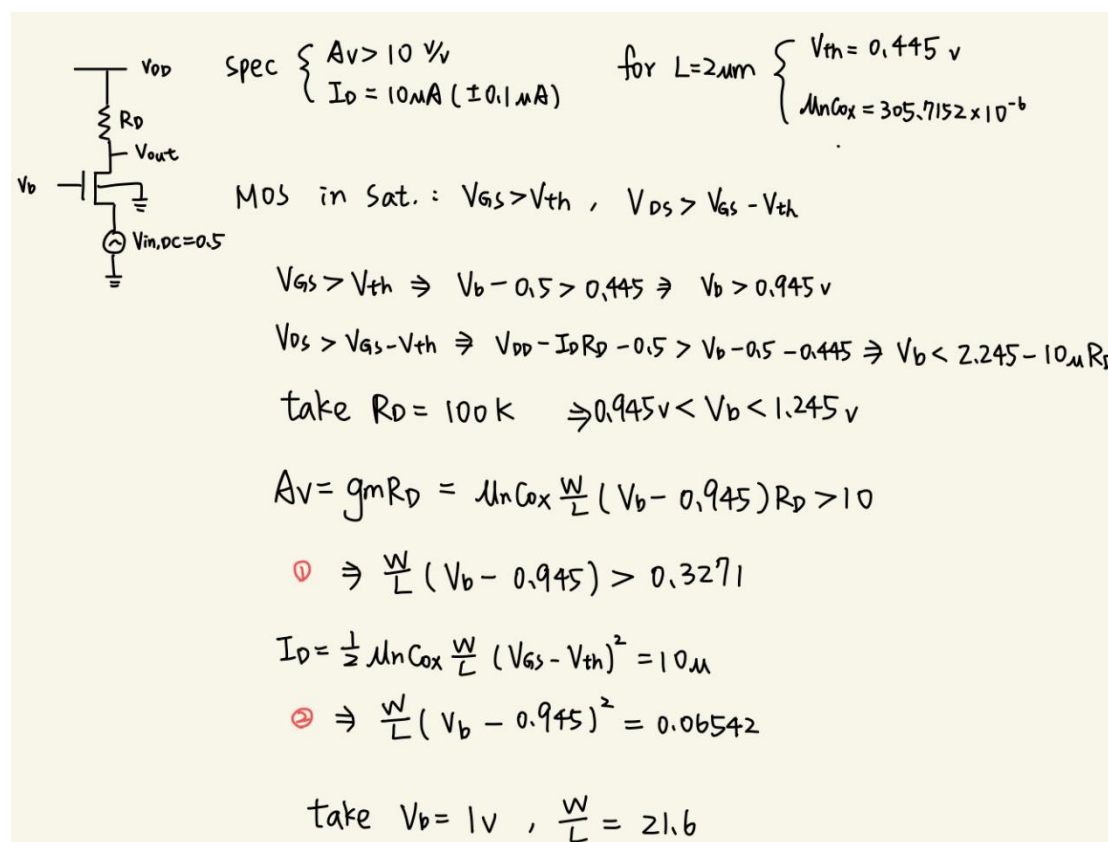 VDD
RD
Vout
Vb
Vin,DC=0.5
spec { Av > 10 V/V
ID = 10μA (±0.1μA)
for L=2μm { Vth = 0.445 v
μnCox = 305.7152×10^-6
MOS in sat. : VGS > Vth , VDS > VGS - Vth
VGS > Vth ⇒ Vb - 0.5 > 0.445 ⇒ Vb > 0.945 v
VDS > VGS - Vth ⇒ VDD - IDRD - 0.5 > Vb - 0.5 - 0.445 ⇒ Vb < 2.245 - 10μRD
take RD = 100K ⇒ 0.945v < Vb < 1.245 v
Av = gmRD = μnCox W/L (Vb - 0.945) RD > 10
① ⇒ W/L (Vb - 0.945) > 0.3271
ID = 1/2 μnCox W/L (VGS - Vth)^2 = 10μ
② ⇒ W/L (Vb - 0.945)^2 = 0.06542
take Vb = 1v , W/L = 21.6